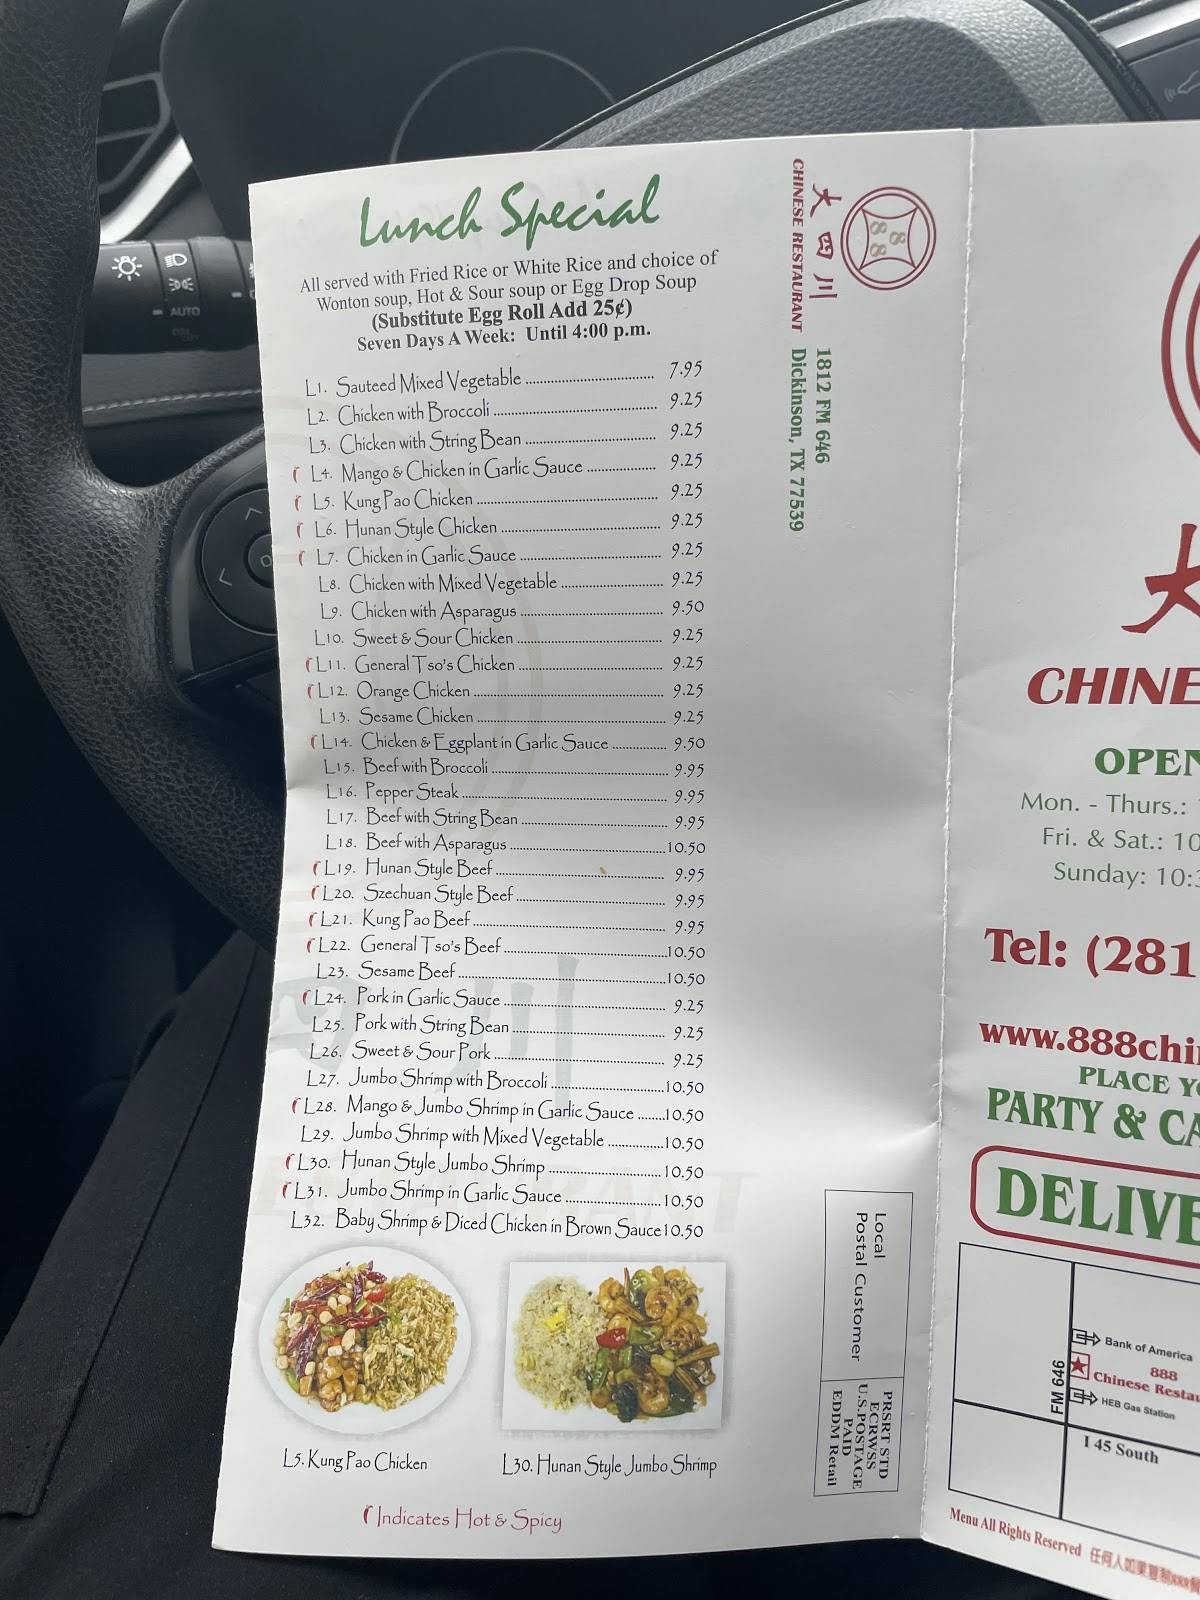 Lunch Special
All served with Fried Rice or White Rice and choice of
Wonton soup, Hot & Sour soup or Egg Drop Soup
(Substitute Egg Roll Add 25¢)
Seven Days A Week: Until 4:00 p.m.
L1. Sauteed Mixed Vegetable 7.95
L2. Chicken with Broccoli 9.25
L3. Chicken with String Bean 9.25
L4. Mango & Chicken in Garlic Sauce 9.25
L5. Kung Pao Chicken 9.25
L6. Hunan Style Chicken 9.25
L7. Chicken in Garlic Sauce 9.25
L8. Chicken with Mixed Vegetable 9.25
L9. Chicken with Asparagus 9.50
L10. Sweet & Sour Chicken 9.25
L11. General Tso's Chicken 9.25
L12. Orange Chicken 9.25
L13. Sesame Chicken 9.25
L14. Chicken & Eggplant in Garlic Sauce 9.50
L15. Beef with Broccoli 9.95
L16. Pepper Steak 9.95
L17. Beef with String Bean 9.95
L18. Beef with Asparagus 10.50
L19. Hunan Style Beef 9.95
L20. Szechuan Style Beef 9.95
L21. Kung Pao Beef 9.95
L22. General Tso's Beef 10.50
L23. Sesame Beef 10.50
L24. Pork in Garlic Sauce 9.25
L25. Pork with String Bean 9.25
L26. Sweet & Sour Pork 9.25
L27. Jumbo Shrimp with Broccoli 10.50
L28. Mango & Jumbo Shrimp in Garlic Sauce 10.50
L29. Jumbo Shrimp with Mixed Vegetable 10.50
L30. Hunan Style Jumbo Shrimp 10.50
L31. Jumbo Shrimp in Garlic Sauce 10.50
L32. Baby Shrimp & Diced Chicken in Brown Sauce 10.50
L5. Kung Pao Chicken
L30. Hunan Style Jumbo Shrimp
Indicates Hot & Spicy
888
大四川
CHINESE RESTAURANT
1812 FM 646
Dickinson, TX 77539
Local
Postal Customer
PRSRT STD
ECRWSS
U.S.POSTAGE
PAID
EDDM Retail
大
CHINE
OPEN
Mon. - Thurs.:
Fri. & Sat.: 10
Sunday: 10:3
Tel: (281
www.888chi
PLACE Y
PARTY & CA
DELIVE
Bank of America
888
Chinese Restau
HEB Gas Station
FM 646
I 45 South
Menu All Rights Reserved
AUTO